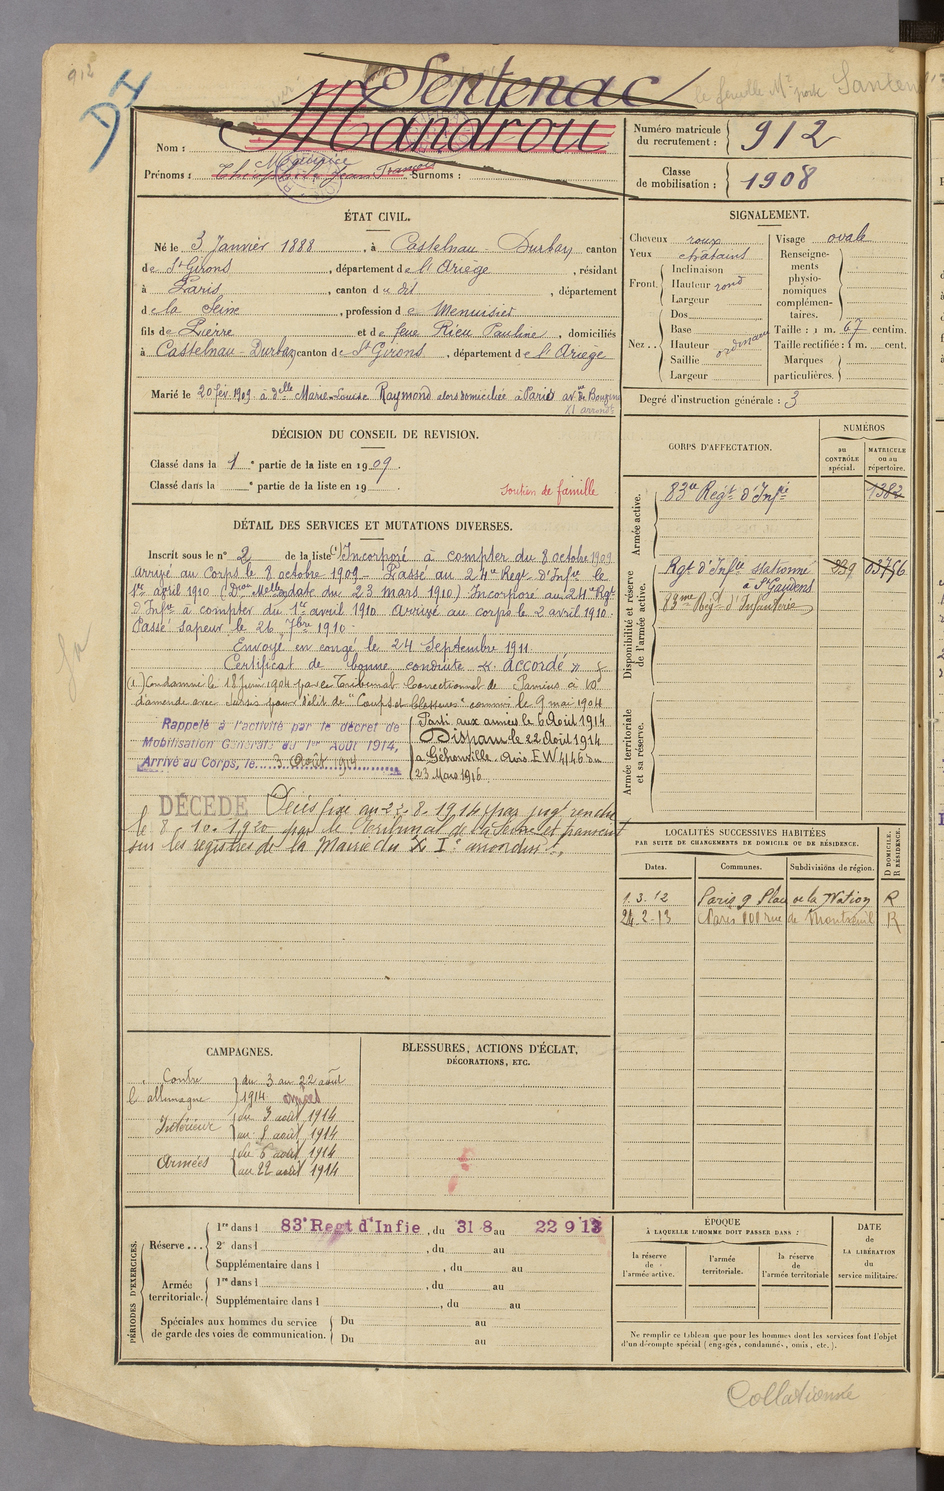 912
D4
Septenac
Mandrou
Nom :
Maurice
Prénoms : Théophile Jean François Surnoms :
Numéro matricule du recrutement : 912
Classe de mobilisation : 1908
ÉTAT CIVIL.
Né le 3 Janvier 1888, à Castelnau-Durban canton
de St Girons, département de l'Ariège, résidant
à Paris, canton du dit, département
de la Seine, profession de Menuisier
fils de Pierre et de feue Rieu Pauline, domiciliés
à Castelnau-Durban canton de St Girons, département de l'Ariège
Marié le 20 fév. 1909 à delle Marie-Louise Raymond alors domiciliée à Paris
XI arrondt
SIGNALEMENT.
Cheveux roux
Yeux chatains
Front. Inclinaison
Hauteur rond
Largeur
Nez .. Dos
Base
Hauteur ordinaire
Saillie
Largeur
Visage ovale
Renseignements physionomiques complémentaires.
Taille : 1 m. 67 centim.
Taille rectifiée : 1 m. cent.
Marques particulières.
Degré d'instruction générale : 3
DÉCISION DU CONSEIL DE REVISION.
Classé dans la 1e partie de la liste en 1909.
Classé dans la e partie de la liste en 19
soutien de famille
CORPS D'AFFECTATION.
NUMÉROS
au CONTRÔLE spécial.
MATRICULE ou au répertoire.
Armée active.
83e Regt d'Infie 1382
Disponibilité et réserve de l'armée active.
Rgt d'Infie stationné
à St Gaudens
83me Regt d'Infanterie
Armée territoriale et sa réserve.
DÉTAIL DES SERVICES ET MUTATIONS DIVERSES.
Inscrit sous le n° 2 de la liste (1) Incorporé à compter du 8 octobre 1909
arrivé au Corps le 8 octobre 1909 - Passé au 24e Regt d'Infie le
1er avril 1910 (Don Melle date du 23 mars 1910) Incorporé au 24e Rgt
d'Infie à compter du 1er avril 1910 Arrivé au corps le 2 avril 1910.
Passé sapeur le 26 7bre 1910.
Envoyé en congé le 24 Septembre 1911
Certificat de bonne conduite « Accordé »
(1) Condamné le 18 juin 1904 par le Tribunal Correctionnel de Pamiers à
d'amende avec sursis pour délit de "Coups et blessures" commis le 9 mai 1904
Rappelé à l'activité par le décret de
Mobilisation Générale du 1er Août 1914,
Arrivé au Corps, le 3 Août 1914
Parti aux armées le 6 Août 1914
Disparu le 22 Août 1914
à Géhonville. Avis E W 4146 du
23 Mars 1916
DÉCÉDÉ Décès fixé au 22.8.1914 par jugt rendu
le 8.10.1920 par le Tribunal de la Seine et transcrit
sur les registres de la Mairie du XIe arrondist.
LOCALITÉS SUCCESSIVES HABITÉES
PAR SUITE DE CHANGEMENTS DE DOMICILE OU DE RÉSIDENCE.
Dates. Communes. Subdivisions de région. D DOMICILE. R RÉSIDENCE.
1.3.12 Paris 9 Place de la Nation R
24-2-13 Paris 100 rue de Montreuil R
CAMPAGNES.
Contre l'allemagne du 3 au 22 août 1914
Intérieur du 3 août 1914
au 5 août 1914
Armées du 6 août 1914
au 22 août 1914
BLESSURES, ACTIONS D'ÉCLAT,
DÉCORATIONS, ETC.
PÉRIODES D'EXERCICES.
Réserve ... 1re dans l 83e Regt d'Infie, du 31 8 au 22 9 13
2e dans l , du au
Supplémentaire dans l , du au
Armée territoriale. 1re dans l , du au
Supplémentaire dans l , du au
Spéciales aux hommes du service de garde des voies de communication. Du au
Du au
ÉPOQUE
À LAQUELLE L'HOMME DOIT PASSER DANS :
la réserve de l'armée active.
l'armée territoriale.
la réserve de l'armée territoriale
DATE de LA LIBÉRATION du service militaire.
Ne remplir ce tableau que pour les hommes dont les services font l'objet
d'un décompte spécial (engagés, condamnés, omis, etc.).
Collationné